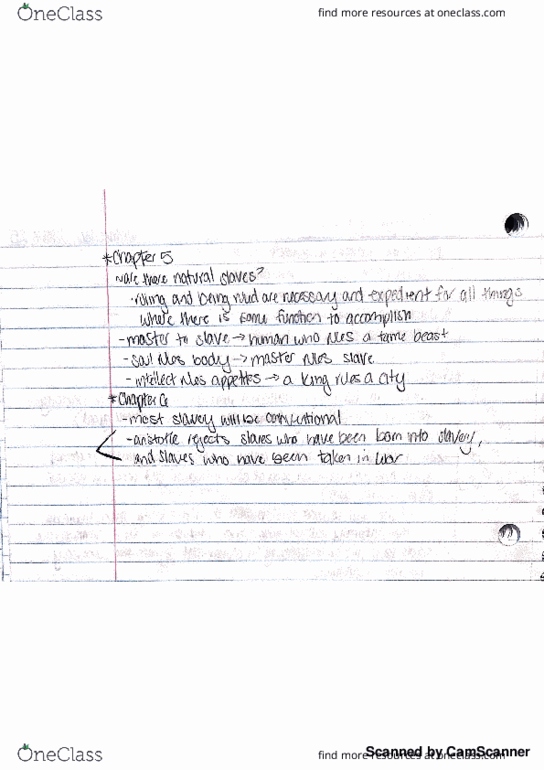 OneClass
find more resources at oneclass.com
*Chapter 5
~are there natural slaves?
-ruling and being ruled are necessary and expedient for all things
where there is some function to accomplish
-master to slave → human who rules a tame beast
-soul rules body → master rules slave
-intellect rules appetites → a king rules a city
*Chapter 6
-most slavery will be conventional
-aristotle rejects slaves who have been born into slavery,
and slaves who have been taken in war
OneClass
find more resources at oneclass.com
Scanned by CamScanner